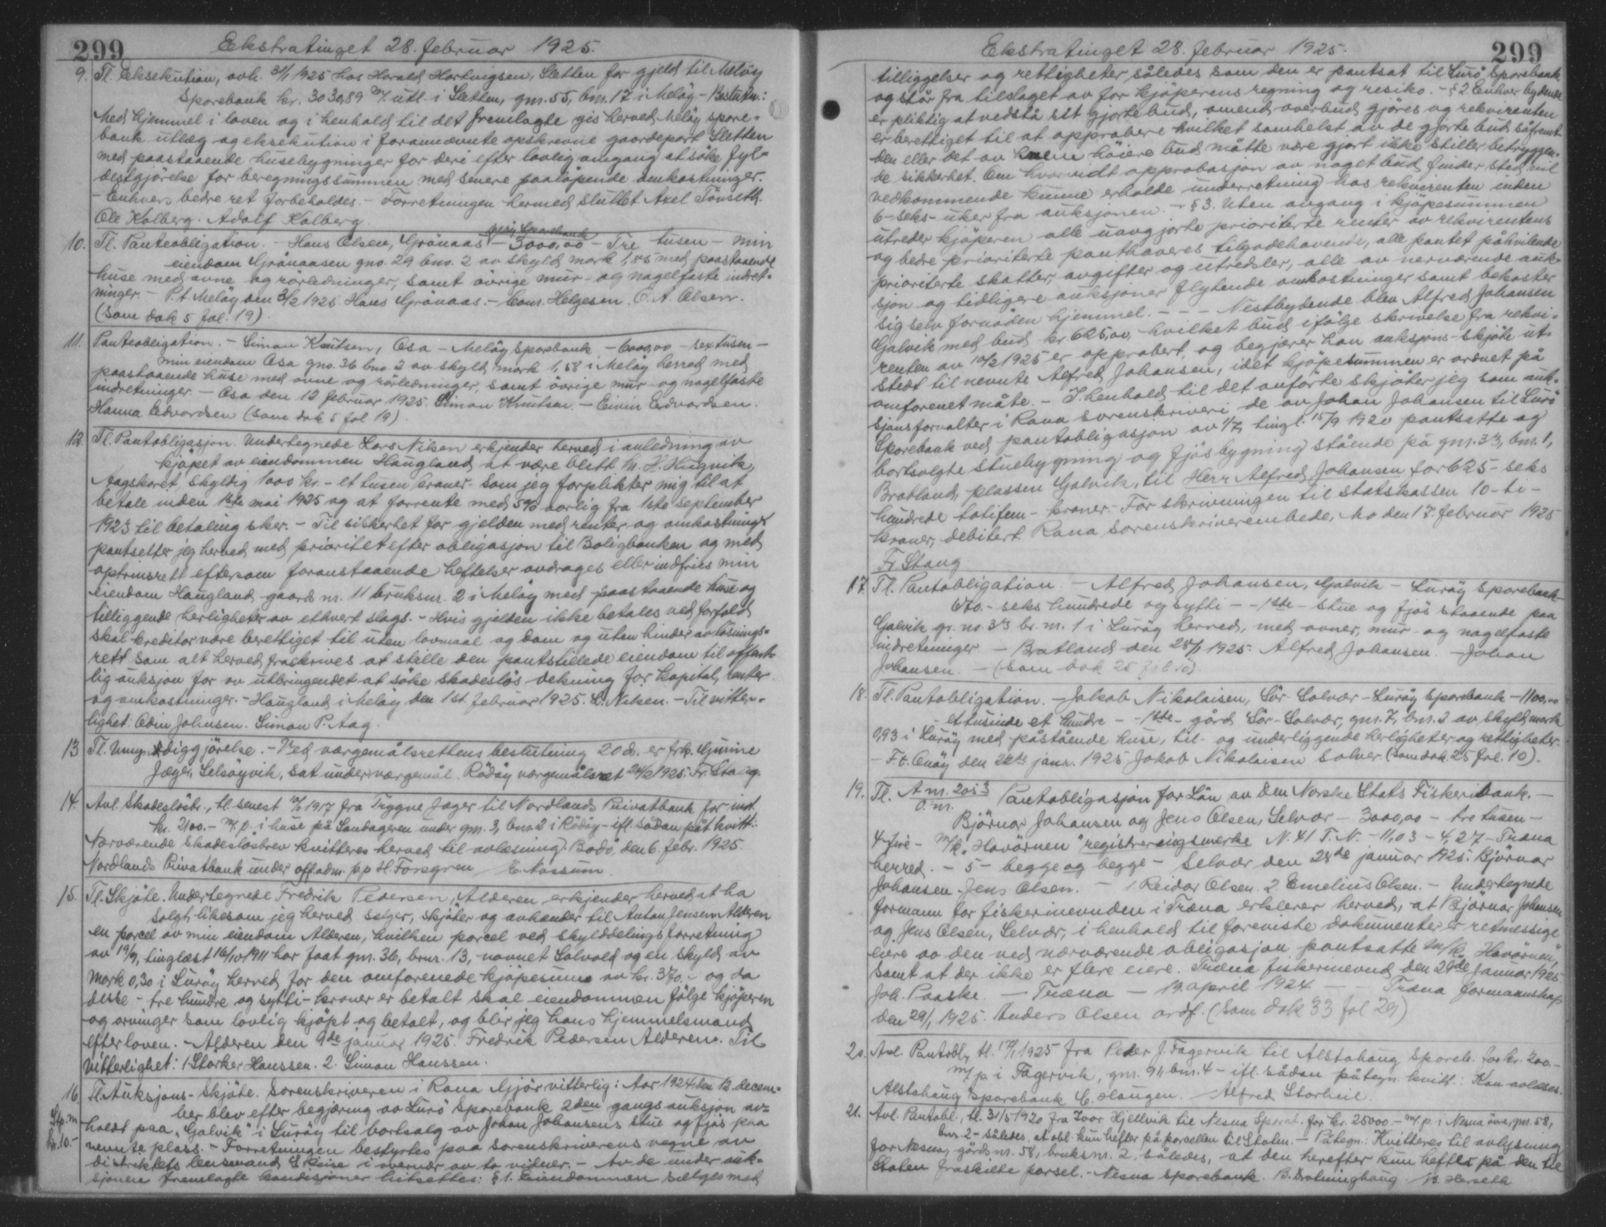 299
Ekstratinget 28. februar 1925.
9. Tl. Eksekution, avh. 31/1 1925 hos Harald Hartvigsen, Sletten for gjeld til Meløy
Sparebank kr. 3030,89 m/ utl. i Sletten, gm. 55, bm. 17 i Meløy - Beslutn:
Med hjemmel i loven og i henhold til det fremlagte gis herved Meløy spare-
bank utlæg og eksekution i foranнevnte opskrevne gaardepart Sletten
med paastaaende husebygninger for deri efter lovlig omgang at søke fyl-
destgjørelse for beregningssummen med senere paaløpende omkostninger.
- Enhvers bedre ret forbeholdes. - Forretningen hermed sluttet Axel Tønseth.
Ole Kolberg. Adolf Kolberg.
Meløy Sparebank
10. Tl. Panteobligation. - Hans Olsen, Grønaas - 3000,00 - Tre tusen - min
eiendom Grønaasen gno. 29 bno. 2 av skyld mark 1,55 med paastaaende
huse med ovne og rørledninger, samt øvrige mur- og nagelfaste indret-
ninger - P.t. Meløy den 3/2 1925 Hans Grønaas. - Conr. Helgesen. O. A. Olsen.
(Som dok 5 fol. 19).
11. Panteobligation. - Simon Knutsen, Osa - Meløy Sparebank - 6000,00 - sextusen -
min eiendom Osa gno. 36 bno. 2 av skyld mark 1,58 i Meløy herred med
paastaaende huse med ovne og rørledninger, samt øvrige mur- og nagelfaste
indretninger - Osa den 12 februar 1925. Simon Knutsen. - Einin Edvardsen.
Hanna Edvardsen (Som dok 5 fol 19)
12. Tl. Pantobligasjon. Undertegnede Lars Nilsen erkjender herved i anledning av
kjøpet av eiendommen Haugland at være blett M. H. Hugnik,
Aagskaret skyldig 1000 kr. - et tusen kroner som jeg forplikter mig til at
betale inden 1ste mai 1925 og at forrente med 5% aarlig fra 1ste september
1923 til betaling sker. - Til sikkerhet for gjelden med renter og omkostninger
pantsetter jeg herved med prioritet efter obligasjon til Boligbanken og med
oprinsrett eftersom foranstaaende heftelser avdrages eller indfries min
eiendom Haugland gaards nr. 11 bruksnr. 2 i Meløy med paastaaende huse og
tilliggende herligheter av ethvert slags. - Hvis gjelden ikke betales ved forfald
skal kreditor være berettiget til uten lovmaal og dom og uten hinder av løsnings-
rett som alt herved fraskrives at stille den pantstillede eiendom til offent-
lig auksjon for av utbringendet at søke skadesløs dekning for kapital, renter
og omkostninger - Haugland i Meløy den 1st. februar 1925. L. Nilsen. - Til vitter-
lighet: Odin Johnsen. Simon P. Aag.
13 Tl. Umyndiggjørelse. - Ved værgemålsrettens beslutning 20 ds. er frk. Gunine
Jæger, Selsøyvik, sat under værgemål. Rødøy værgemålsret 20/2 1925. Fr. Stang.
14. Avl. Skadesløsbr., tl. senest 1917 fra Trygve Jæger til Nordlands Privatbank for inst.
kr. 2100.- m/p. i huse på Sandageren under gm. 3, bno 2 i Rødøy - ifl. sådan påt. kvitt:
Nærværende skadesløsbrev kvitteres herved til avløsning. Bodø den 6. febr. 1925
Nordlands Privatbank under off. adm. pp. H. Forsgren E. Nossum.
15. Tl. Skjøte. Undertegnede Fredrik Pedersen, Alderen erkjender herved at ha
solgt, likesom jeg herved selger, skjøter og avhender til Anton Jensen Alderen
en parcel av min eiendom Alderen, hvilken parcel ved skylddelingsforretning
av 19/9, tinglæst 16/10 1911 har faat gm. 36, brnr. 13, navnet Solvold og en skyld av
mark 0,30 i Lurøy herred for den omforenede kjøpesum av kr. 370,- og da
disse - tre hundre og sytti - kroner er betalt skal eiendommen følge kjøperen
og arvinger som lovlig kjøpt og betalt, og blir jeg hans hjemmelsmand
efter loven. - Alderen den 9de januar 1925. Fredrik Pedersen Alderen. Til
vitterlighet: 1 Størker Hanssen. 2. Simon Hanssen.
16. Tl. Auksjons-Skjøte. Sorenskriveren i Rana Gjør vitterlig: Aar 1924 den 13. decem-
ber blev efter begjæring av Lurø Sparebank 2den gangs auksjon av-
holdt paa "Galvik" i Lurøy til bortsalg av Johan Johansens stue og fjøs paa
nevnte plass. - Forretningen bestyrtes paa sorenskriverens vegne av
distriktets lensmand i overvær av to vitner. - Av de under auk-
sjonen fremlagte kondisjoner hitsettes: § 1. Eiendommen selges med
Stp. m
kr. 10.-
299
Ekstratinget 28. februar 1925.
tilliggelser og rettigheter, således som den er pantsat til Lurø Sparebank
og står fra tilslaget av for kjøperens regning og resiko. - § 2 Enhver bydende
er pliktig at vedstå sit gjorte bud, omend overbud gjøres og rekvirenten
er berettiget til at approbere hvilket somhelst av de gjorte bud såfremt
den eller det av høiere bud måtte være gjort ikke stiller betryggen-
de sikkerhet. Om hvorvidt approbasjon av noget bud finder sted vil
vedkommende kunne erholde underretning hos rekvirenten inden
6-seks- uker fra auksjonen. - § 3. Uten avgang i kjøpesummen
utreder kjøperen alle uavgjorte prioriterte renter av rekvirentens
og bedre prioriterte panthaveres tilgodehavende, alle pantet påhvilende
prioriterte skatter, avgifter og utredsler, alle av nerværende auk-
sjon og tidligere auksjoner flytende omkostninger samt bekoster
sig selv fornøden hjemmel. - - - Mestbydende blev Alfred Johansen
Galvik med bud kr 625,00 hvilket bud ifølge skrivelse fra rekvi-
renten av 10/2 1925 er approbert, og begjærer han auksjons-skjøte ut-
stedt til nevnte Alfred Johansen, idet kjøpesummen er ordnet på
omforenet måte. - I henhold til det anførte skjøter jeg som auk-
sjonsforvalter i Rana sorenskriveri de av Johan Johansen til Lurø
Sparebank ved pantobligasjon av 1/7, tingl. 15/9 1920 pantsatte og
bortsolgte stuebygning og fjøsbygning stående på gnr. 33, bnr. 1,
Bratland, plassen Galvik, til Herr Alfred Johansen for 625 - seks
hundrede totifem - kroner. For skrivningen til statskassen 10-ti-
kroner, debitert Rana sorenskriverembede, Mo den 17. februar 1925
Fr Stang
17. Tl. Pantobligation - Alfred Johansen, Galvik - Lurøy Sparebank
670,- seks hundrede og sytti - 1ste - stue og fjøs staaende paa
Galvik gr. no 33 br. nr. 1 i Lurøy herred, med ovner, mur- og nagelfaste
indretninger - Bratland den 28/1 1925. Alfred Johansen. - Johan
Johansen - (som dok 25 fol 10).
18. Tl. Pantobligation. - Jakob Nikolaisen, Sør-Solvær - Lurøy Sparebank - 1100,00
ettusinde et hundre - 1ste - gård Sør-Solvær, gnr. 7, bnr. 2 av skyld mark
0,93 i Lurøy med påstående huse, til- og underliggende herligheter og rettigheter.
- P.t. Onøy den 22de janr. 1925 Jakob Nikolaisen Solvær (som dok 25 fol. 10).
19. Tl. A m. 2053 Pantobligasjon for Lån av Den Norske Stats Fiskeribank. -
O. m.
Bjørnar Johansen og Jens Olsen, Selvær - 3000,00 - tre tusen -
4-fire - m/k. "Havørnen" registreringsmerke N. 41 T.N. - 11,03 - 4,27 - Træna
herred. - 5 - begge og begge - Selvær den 28de januar 1925. Bjørnar
Johansen. Jens Olsen. - 1 Reidar Olsen. 2 Emelius Olsen. - Undertegnede
formann for fiskerinevnden i Træna erklærer herved, at Bjørnar Johansen
og Jens Olsen, Selvær, i henhold til foreviste dokumenter er retmessige
eiere av den ved nærværende obligasjon pantsatte m/k. "Havørnen",
samt at der ikke er flere eiere. Træna fiskerinevnd den 29de januar 1925
Joh. Paaske. - Træna - 19. april 1924 - - Træna formannskap
den 29/1 1925 Anders Olsen ordf. (Som dok 33 fol 29)
20. Avl. Pantobl., tl. 1925 fra Peder J. Fagervik til Alstahaug Spareb. for kr. 200.-
m/p i Fagervik, gnr. 94 bnr. 4 - ifl. sådan påtegn. kvitt.: Kan avløses.
Alstahaug Sparebank C. Haugen. Alfred Storheil.
21. Avl. Pantobl., tl. 31/5 1920 fra Ivar Hjellvik til Nesna Spareb. for kr. 25000.- m/p. i Nesna øvre, gnr. 58,
bnr. 2 - således, at obl. kun hefter på parcellen til Skolen. - Påtegn: Kvitteres til avlysning
for Nesna, gårds nr. 58, bruksnr. 2 således, at den herefter kun hefter på den til
Skolen fraskilte parsel. - Nesna Sparebank. B. Dronninghaug.